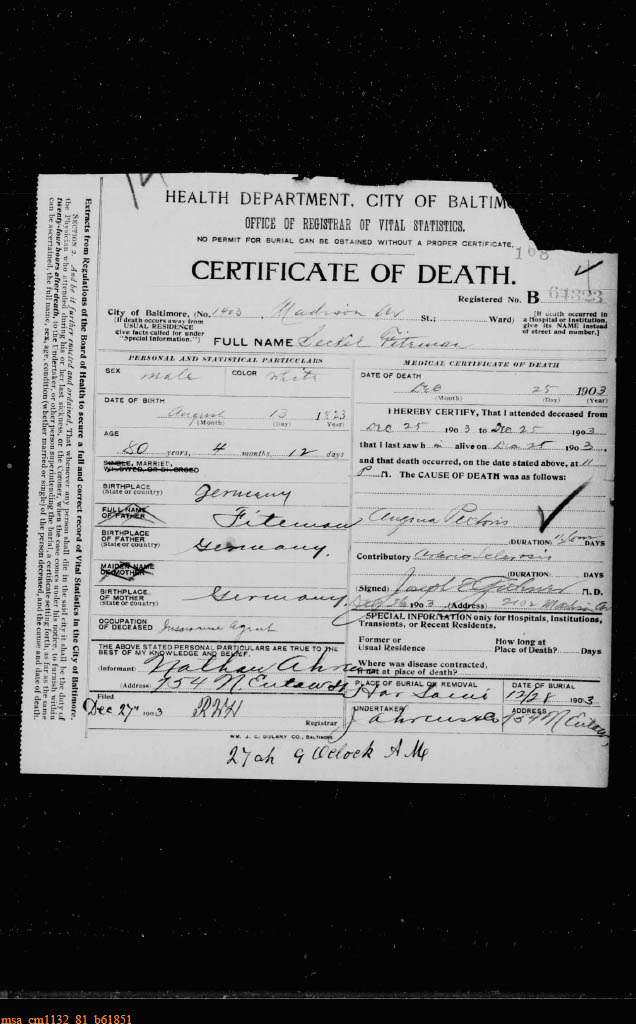 HEALTH DEPARTMENT, CITY OF BALTIM
OFFICE OF REGISTRAR OF VITAL STATISTICS.
NO PERMIT FOR BURIAL CAN BE OBTAINED WITHOUT A PROPER CERTIFICATE.
168
CERTIFICATE OF DEATH.
Registered No. B
City of Baltimore, (No. 1903 Madison Av St.; Ward)
[If death occurs away from USUAL RESIDENCE give facts called for under "Special Information."]
[If death occurred in a Hospital or Institution, give its NAME instead of street and number.]
FULL NAME Fiteman
PERSONAL AND STATISTICAL PARTICULARS
SEX male COLOR White
DATE OF BIRTH
August 13 1823
(Month) (Day) Year)
AGE
80 years, 4 months, 12 days
SINGLE, MARRIED,
WIDOWED, OR DIVORCED
BIRTHPLACE
(State or country) Germany
FULL NAME
OF FATHER Fiteman
BIRTHPLACE
OF FATHER
(State or country) Germany.
MAIDEN NAME
OF MOTHER
BIRTHPLACE
OF MOTHER
(State or country) Germany
OCCUPATION
OF DECEASED Insurance Agent
THE ABOVE STATED PERSONAL PARTICULARS ARE TRUE TO THE
BEST OF MY KNOWLEDGE AND BELIEF.
(Informant) Nathan Ahrens
(Address) 754 N Eutaw St
Filed
Dec 27" 1903 Registrar
MEDICAL CERTIFICATE OF DEATH
DATE OF DEATH
Dec 25 1903
(Month) (Day) (Year)
I HEREBY CERTIFY, That I attended deceased from
Dec 25 1903 to Dec 25 1903
that I last saw h im alive on Dec 25 1903,
and that death occurred, on the date stated above, at 11
P. M. The CAUSE OF DEATH was as follows:
Angina Pectoris
(DURATION) DAYS
Contributory Arterio Sclerosis
(DURATION) DAYS
(Signed) Joseph E M.D.
1903 (Address) Madison Av
SPECIAL INFORMATION only for Hospitals, Institutions,
Transients, or Recent Residents.
Former or
Usual Residence
How long at
Place of Death? Days
Where was disease contracted,
if not at place of death?
PLACE OF BURIAL OR REMOVAL
DATE OF BURIAL
12/28 1903
UNDERTAKER
J Ahrens & Co
ADDRESS
754 N Eutaw
WM. J. C. DULANY CO., BALTIMORE
9 Oclock A M
Extracts from Regulations of the Board of Health to secure a full and correct record of Vital Statistics in the City of Baltimore.
SECTION 2. And be it further enacted and ordained, That whenever any person shall die in the said city it shall be the duty of
the Physician who attended during his or her last sickness, or of the Coroner, when the case comes under his notice, to furnish within
twenty-four hours after death, to the Undertaker, or other person superintending the burial, a certificate setting forth, as far as the same
can be ascertained, the full name, sex, age, condition (whether married or single) of the person deceased, and the cause and date of death.
msa_cm1132_81_b61851